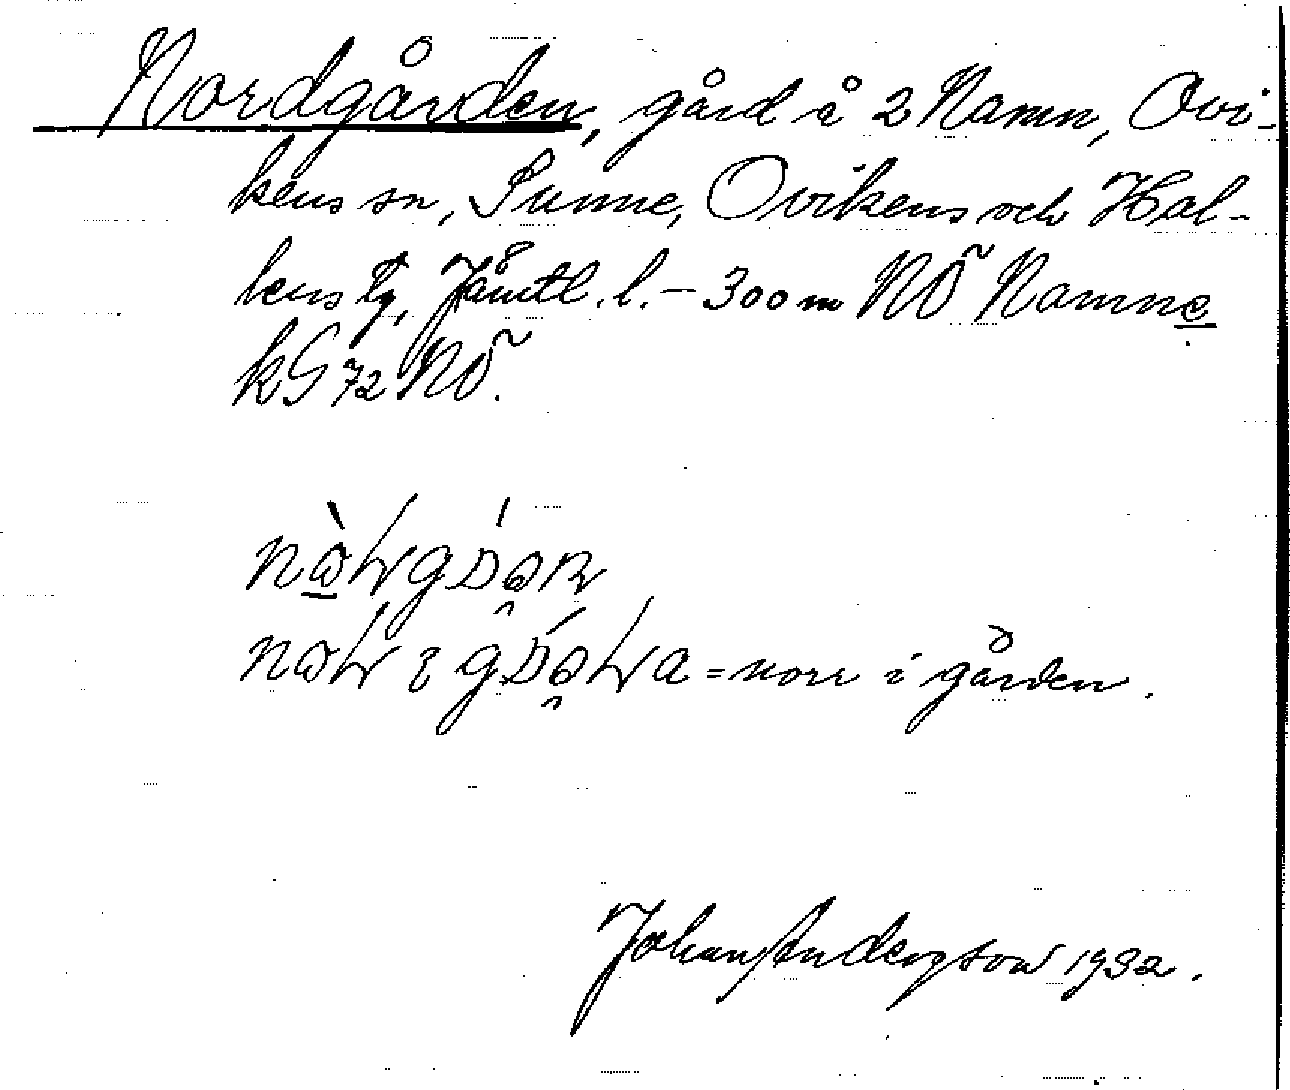 Nordgården, gård å 2 Namn, Ovi-
kens sn, Sunne, Ovikens och Hal-
lens tg, Jämtl. l. – 300 m NÖ Namne
kG 72 NÖ.
= norr i gården.
Johan Anderson 1932.